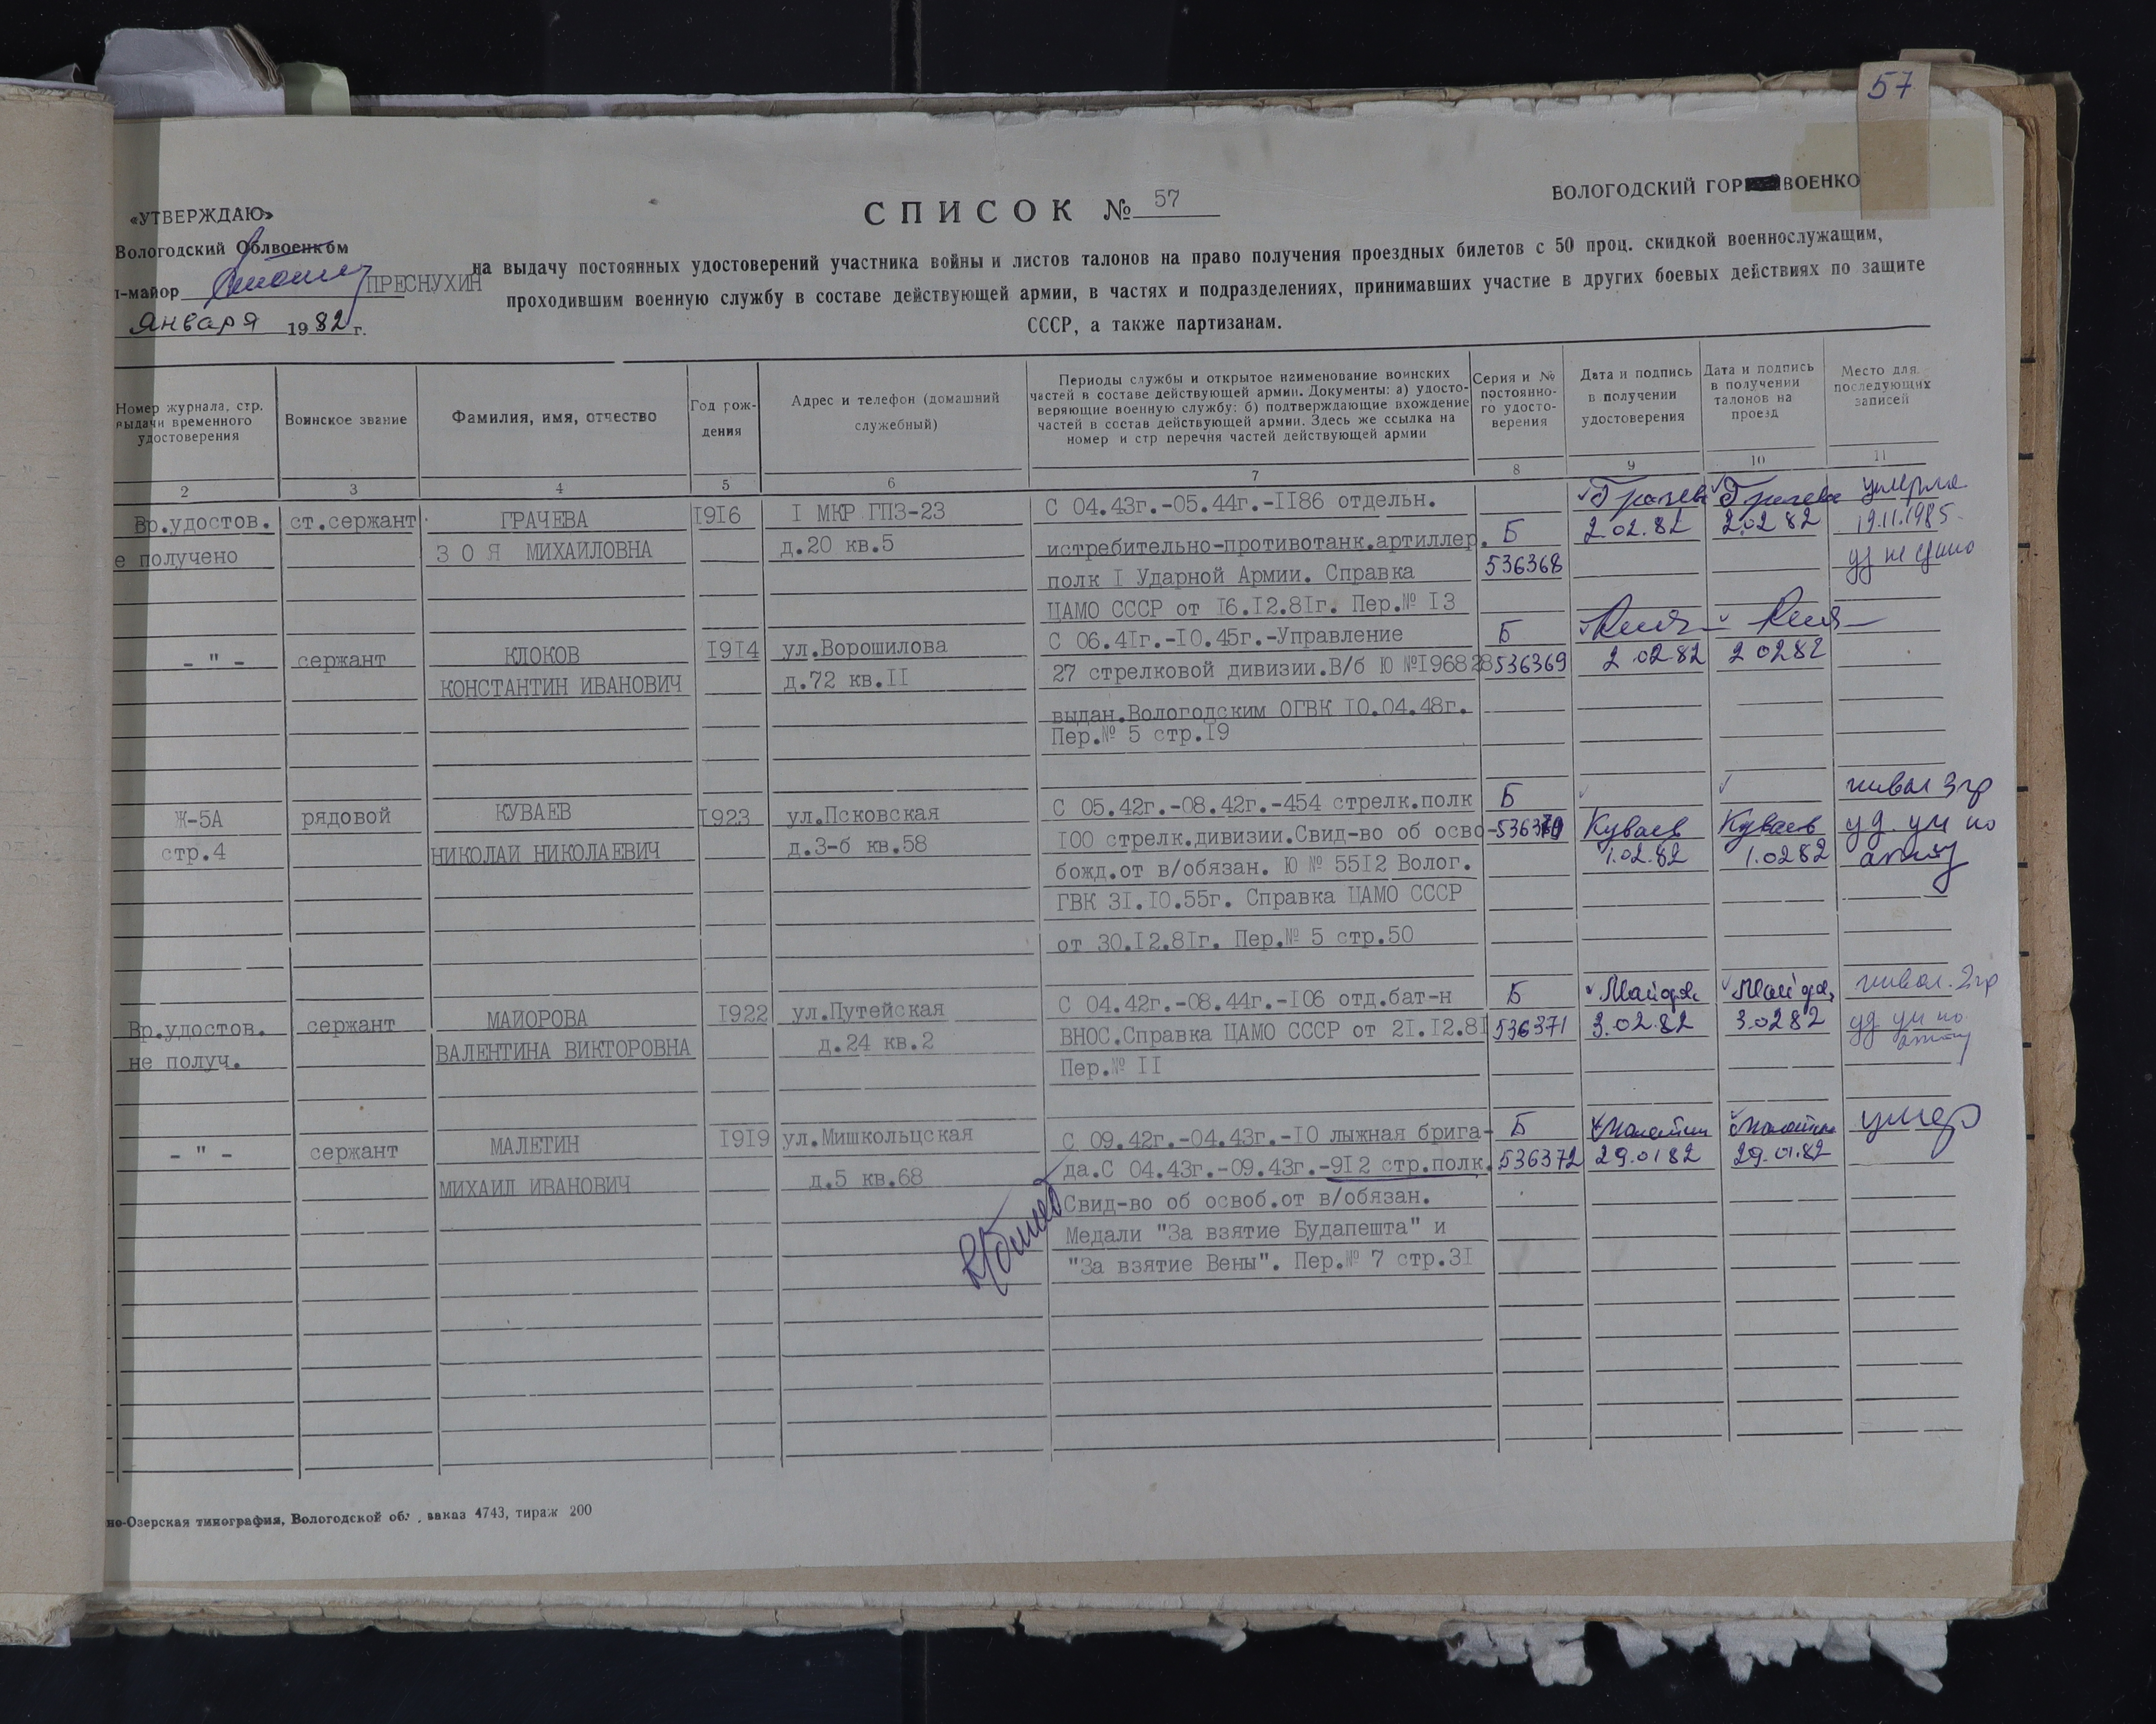 57
ВОЛОГОДСКИЙ ГОР ВОЕНКО
«УТВЕРЖДАЮ»
СПИСОК № 57
Вологодский Облвоенком
на выдачу постоянных удостоверений участника войны и листов талонов на право получения проездных билетов с 50 проц. скидкой военнослужащим,
-майор ПРЕСНУХИН
проходившим военную службу в составе действующей армии, в частях и подразделениях, принимавших участие в других боевых действиях по защите
января 1982 г.
СССР, а также партизанам.
Номер журнала, стр. выдачи временного удостоверения
Воинское звание
Фамилия, имя, отчество
Год рождения
Адрес и телефон (домашний
служебный)
Периоды службы и открытое наименование воинских
частей в составе действующей армии. Документы: а) удосто-
веряющие военную службу; б) подтверждающие вхождение
частей в состав действующей армии. Здесь же ссылка на
номер и стр перечня частей действующей армии
Серия и №
постоянно-
го удосто-
верения
Дата и подпись
в получении
удостоверения
Дата и подпись
в получении
талонов на
проезд
Место для
последующих
записей
2 3 4 5 6 7 8 9 10 11
Вр.удостов. ст.сержант ГРАЧЕВА 1916 I МКР ГПЗ-23 С 04.43г.-05.44г.-II86 отдельн. Грачева Грачева умерла
е получено ЗОЯ МИХАИЛОВНА д.20 кв.5 истребительно-противотанк.артиллер. Б 2.02.82 2.02 82 19.11.1985
полк I Ударной Армии. Справка 536368 уд не сдано
ЦАМО СССР от 16.12.81г. Пер.№ 13
- " - сержант КЛОКОВ 1914 ул.Ворошилова С 06.41г.-10.45г.-Управление Б
КОНСТАНТИН ИВАНОВИЧ д.72 кв.II 27 стрелковой дивизии.В/б Ю №196828 536369 2 02 82 2 02 82
выдан.Вологодским ОГВК 10.04.48г.
Пер.№ 5 стр.19
Ж-5А рядовой КУВАЕВ 1923 ул.Псковская С 05.42г.-08.42г.-454 стрелк.полк Б инвал 3 гр
стр.4 НИКОЛАИ НИКОЛАЕВИЧ д.3-б кв.58 100 стрелк.дивизии.Свид-во об осво- 536370 Куваев Куваев уд. ун по
божд.от в/обязан. Ю № 5512 Волог. 1.02.82 1.02 82
ГВК 31.10.55г. Справка ЦАМО СССР
от 30.12.81г. Пер.№ 5 стр.50
Вр.удостов. сержант МАЙОРОВА 1922 ул.Путейская С 04.42г.-08.44г.-106 отд.бат-н Б инвал. 2 гр
не получ. ВАЛЕНТИНА ВИКТОРОВНА д.24 кв.2 ВНОС.Справка ЦАМО СССР от 21.12.81 536371 3.02.82 3.02 82 уд ун по
Пер.№ II
- " - сержант МАЛЕТИН 1919 ул.Мишкольцская С 09.42г.-04.43г.-10 лыжная брига- Б Малетин Малетин умер
МИХАИЛ ИВАНОВИЧ д.5 кв.68 да.С 04.43г.-09.43г.-912 стр.полк. 536372 29.01 82 29.01.82
Свид-во об освоб.от в/обязан.
Медали "За взятие Будапешта" и
"За взятие Вены". Пер.№ 7 стр.31
но-Озерская типография, Вологодской обл., заказ 4743, тираж 200